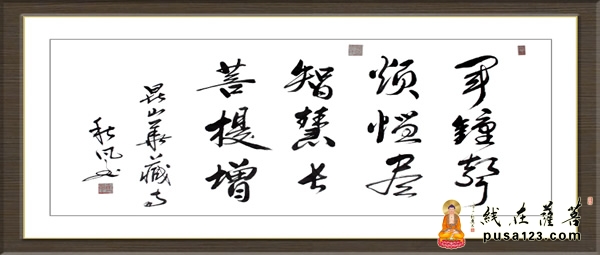 闻鐘聲
烦恼尽
智慧长
菩提增
昆山華藏寺
秋风书
菩薩在线
pusa123.com